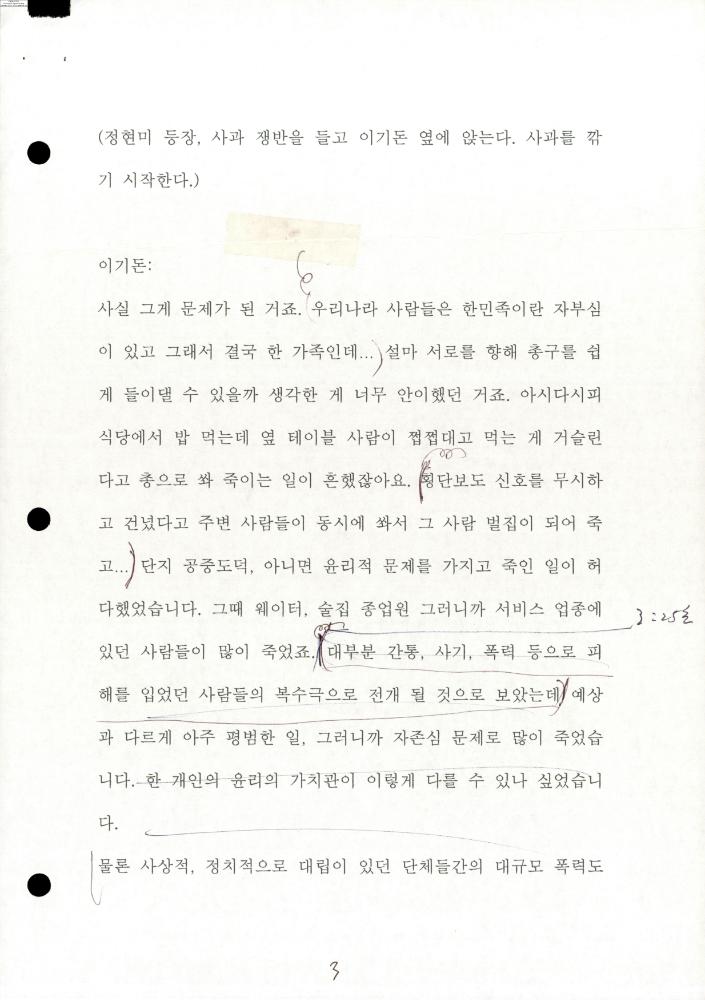 (정현미 등장, 사과 쟁반을 들고 이기돈 옆에 앉는다. 사과를 깎
기 시작한다.)
이기돈:
사실 그게 문제가 된 거죠. 우리나라 사람들은 한민족이란 자부심
이 있고 그래서 결국 한 가족인데... 설마 서로를 향해 총구를 쉽
게 들이댈 수 있을까 생각한 게 너무 안이했던 거죠. 아시다시피
식당에서 밥 먹는데 옆 테이블 사람이 쩝쩝대고 먹는 게 거슬린
다고 총으로 쏴 죽이는 일이 흔했잖아요. 횡단보도 신호를 무시하
고 건넜다고 주변 사람들이 동시에 쏴서 그 사람 벌집이 되어 죽
고... 단지 공중도덕, 아니면 윤리적 문제를 가지고 죽인 일이 허
다했었습니다. 그때 웨이터, 술집 종업원 그러니까 서비스 업종에
3:25초
있던 사람들이 많이 죽었죠. 대부분 간통, 사기, 폭력 등으로 피
해를 입었던 사람들의 복수극으로 전개 될 것으로 보았는데 예상
과 다르게 아주 평범한 일, 그러니까 자존심 문제로 많이 죽었습
니다. 한 개인의 윤리의 가치관이 이렇게 다를 수 있나 싶었습니
다.
물론 사상적, 정치적으로 대립이 있던 단체들간의 대규모 폭력도
3